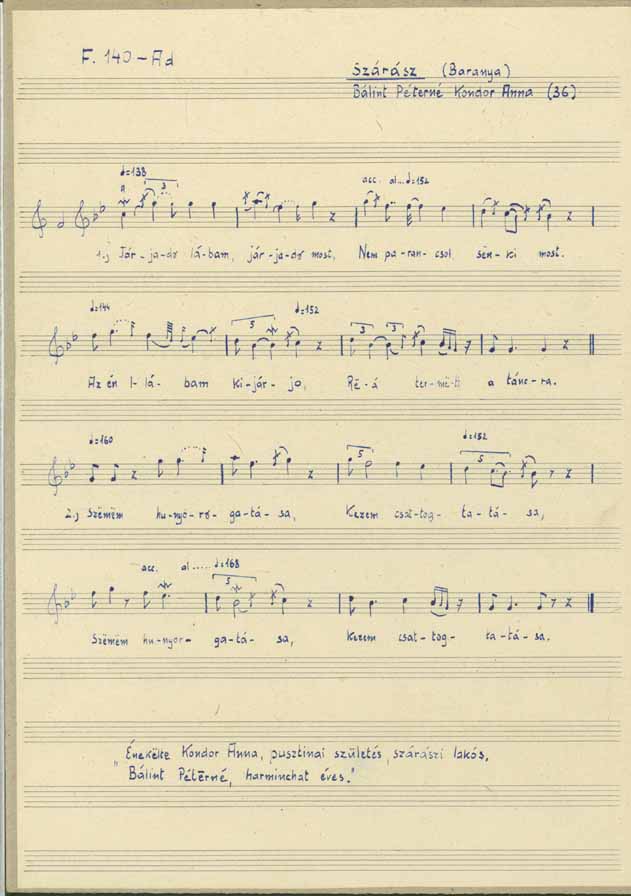 F. 140-Ad
Szárász (Baranya)
Bálint Péterné Kondor Anna (36)
♩=138
3
acc. al...♩=152
1.) Jár-ja-dɤ lá-bam, jár-ja-dɤ most, Nem pa-ran-csol sën-ki most.
♩=144
5
♩=152
3 3
Az én l-lá-bam ki-jár-jo, Rë-á ter-më-tt a tánc-ra.
♩=160
5
♩=152
5
2.) Szëmëm hu-nyo-ro-ga-tá-sa, Kezem csat-tog-ta-tá-sa,
acc. al.....♩=168
5
Szëmëm hu-nyor-ga-tá-sa, Kezem csat-tog-ta-tá-sa.
„Énekëlte Kondor Anna, pusztinai születés, szárászi lakós,
Bálint Pétërné, harminchat éves."